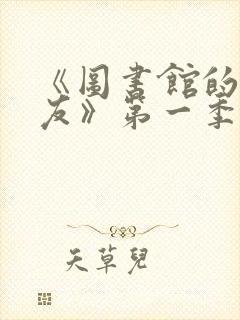 《圖書館的
友》第一季
天草兒